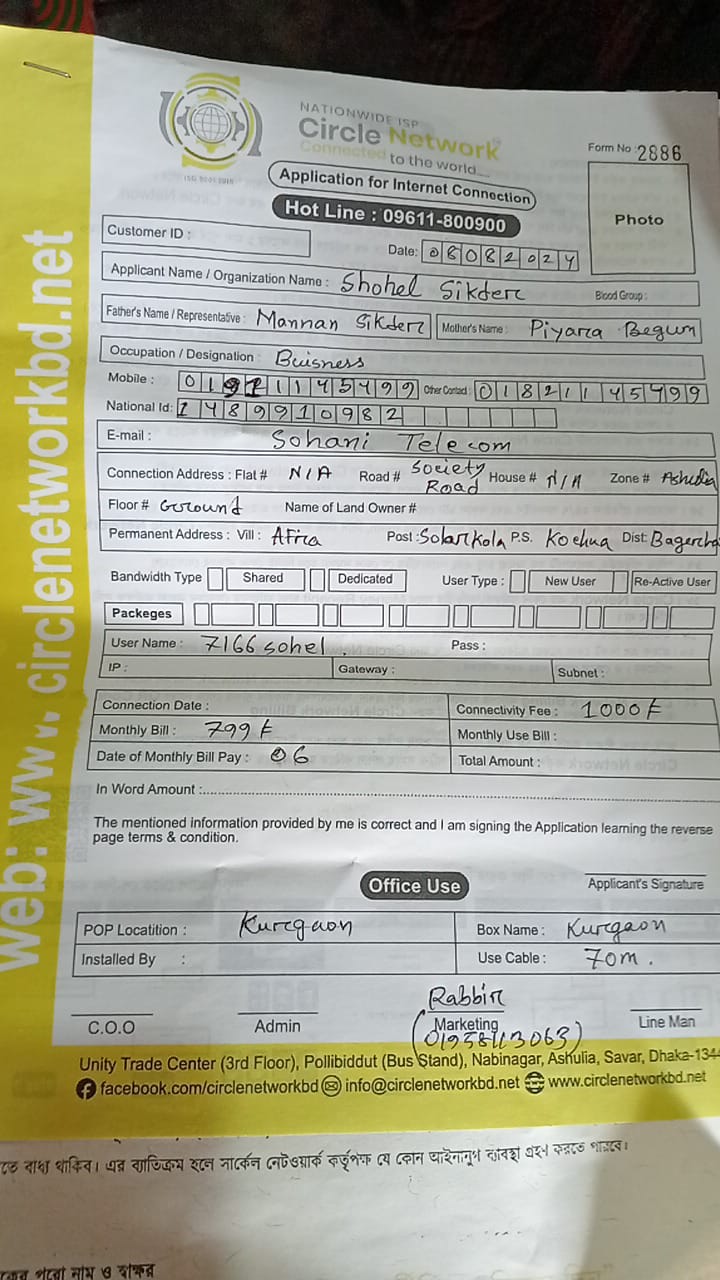 Web: www.circlenetworkbd.net
NATIONWIDE ISP
Circle Network
Connected to the world....
ISO 9001:2015
Form No : 2886
Application for Internet Connection
Hot Line : 09611-800900
Photo
Customer ID :
Date: 08082024
Applicant Name / Organization Name : Shohel Sikder Blood Group :
Father's Name / Representative : Mannan Sikder Mother's Name : Piyara Begum
Occupation / Designation : Buisness
Mobile : Other Contact : 01821145499
National Id: 1489910982
E-mail : Sohani Telecom
Connection Address : Flat # N/A Road # Society Road House # N/A Zone # Ashulia
Floor # Ground Name of Land Owner #
Permanent Address : Vill : Afra Post : Solarkola P.S. Kochua Dist: Bagerha
Bandwidth Type Shared Dedicated User Type : New User Re-Active User
Packeges
User Name : 7166 sohel Pass :
IP : Gateway : Subnet :
Connection Date : Connectivity Fee : 1000৳
Monthly Bill : 799৳ Monthly Use Bill :
Date of Monthly Bill Pay : 06 Total Amount :
In Word Amount :
The mentioned information provided by me is correct and I am signing the Application learning the reverse
page terms & condition.
Office Use
Applicant's Signature
POP Locatition : Kurgaon Box Name : Kurgaon
Installed By : Use Cable : 70m.
Rabbir
C.O.O Admin Marketing Line Man
Unity Trade Center (3rd Floor), Pollibiddut (Bus Stand), Nabinagar, Ashulia, Savar, Dhaka-1344
facebook.com/circlenetworkbd info@circlenetworkbd.net www.circlenetworkbd.net
তে বাধ্য থাকিব। এর ব্যতিক্রম হলে সার্কেল নেটওয়ার্ক কর্তৃপক্ষ যে কোন আইনানুগ ব্যবস্থা গ্রহণ করতে পারবে।
পুরো নাম ও স্বাক্ষর